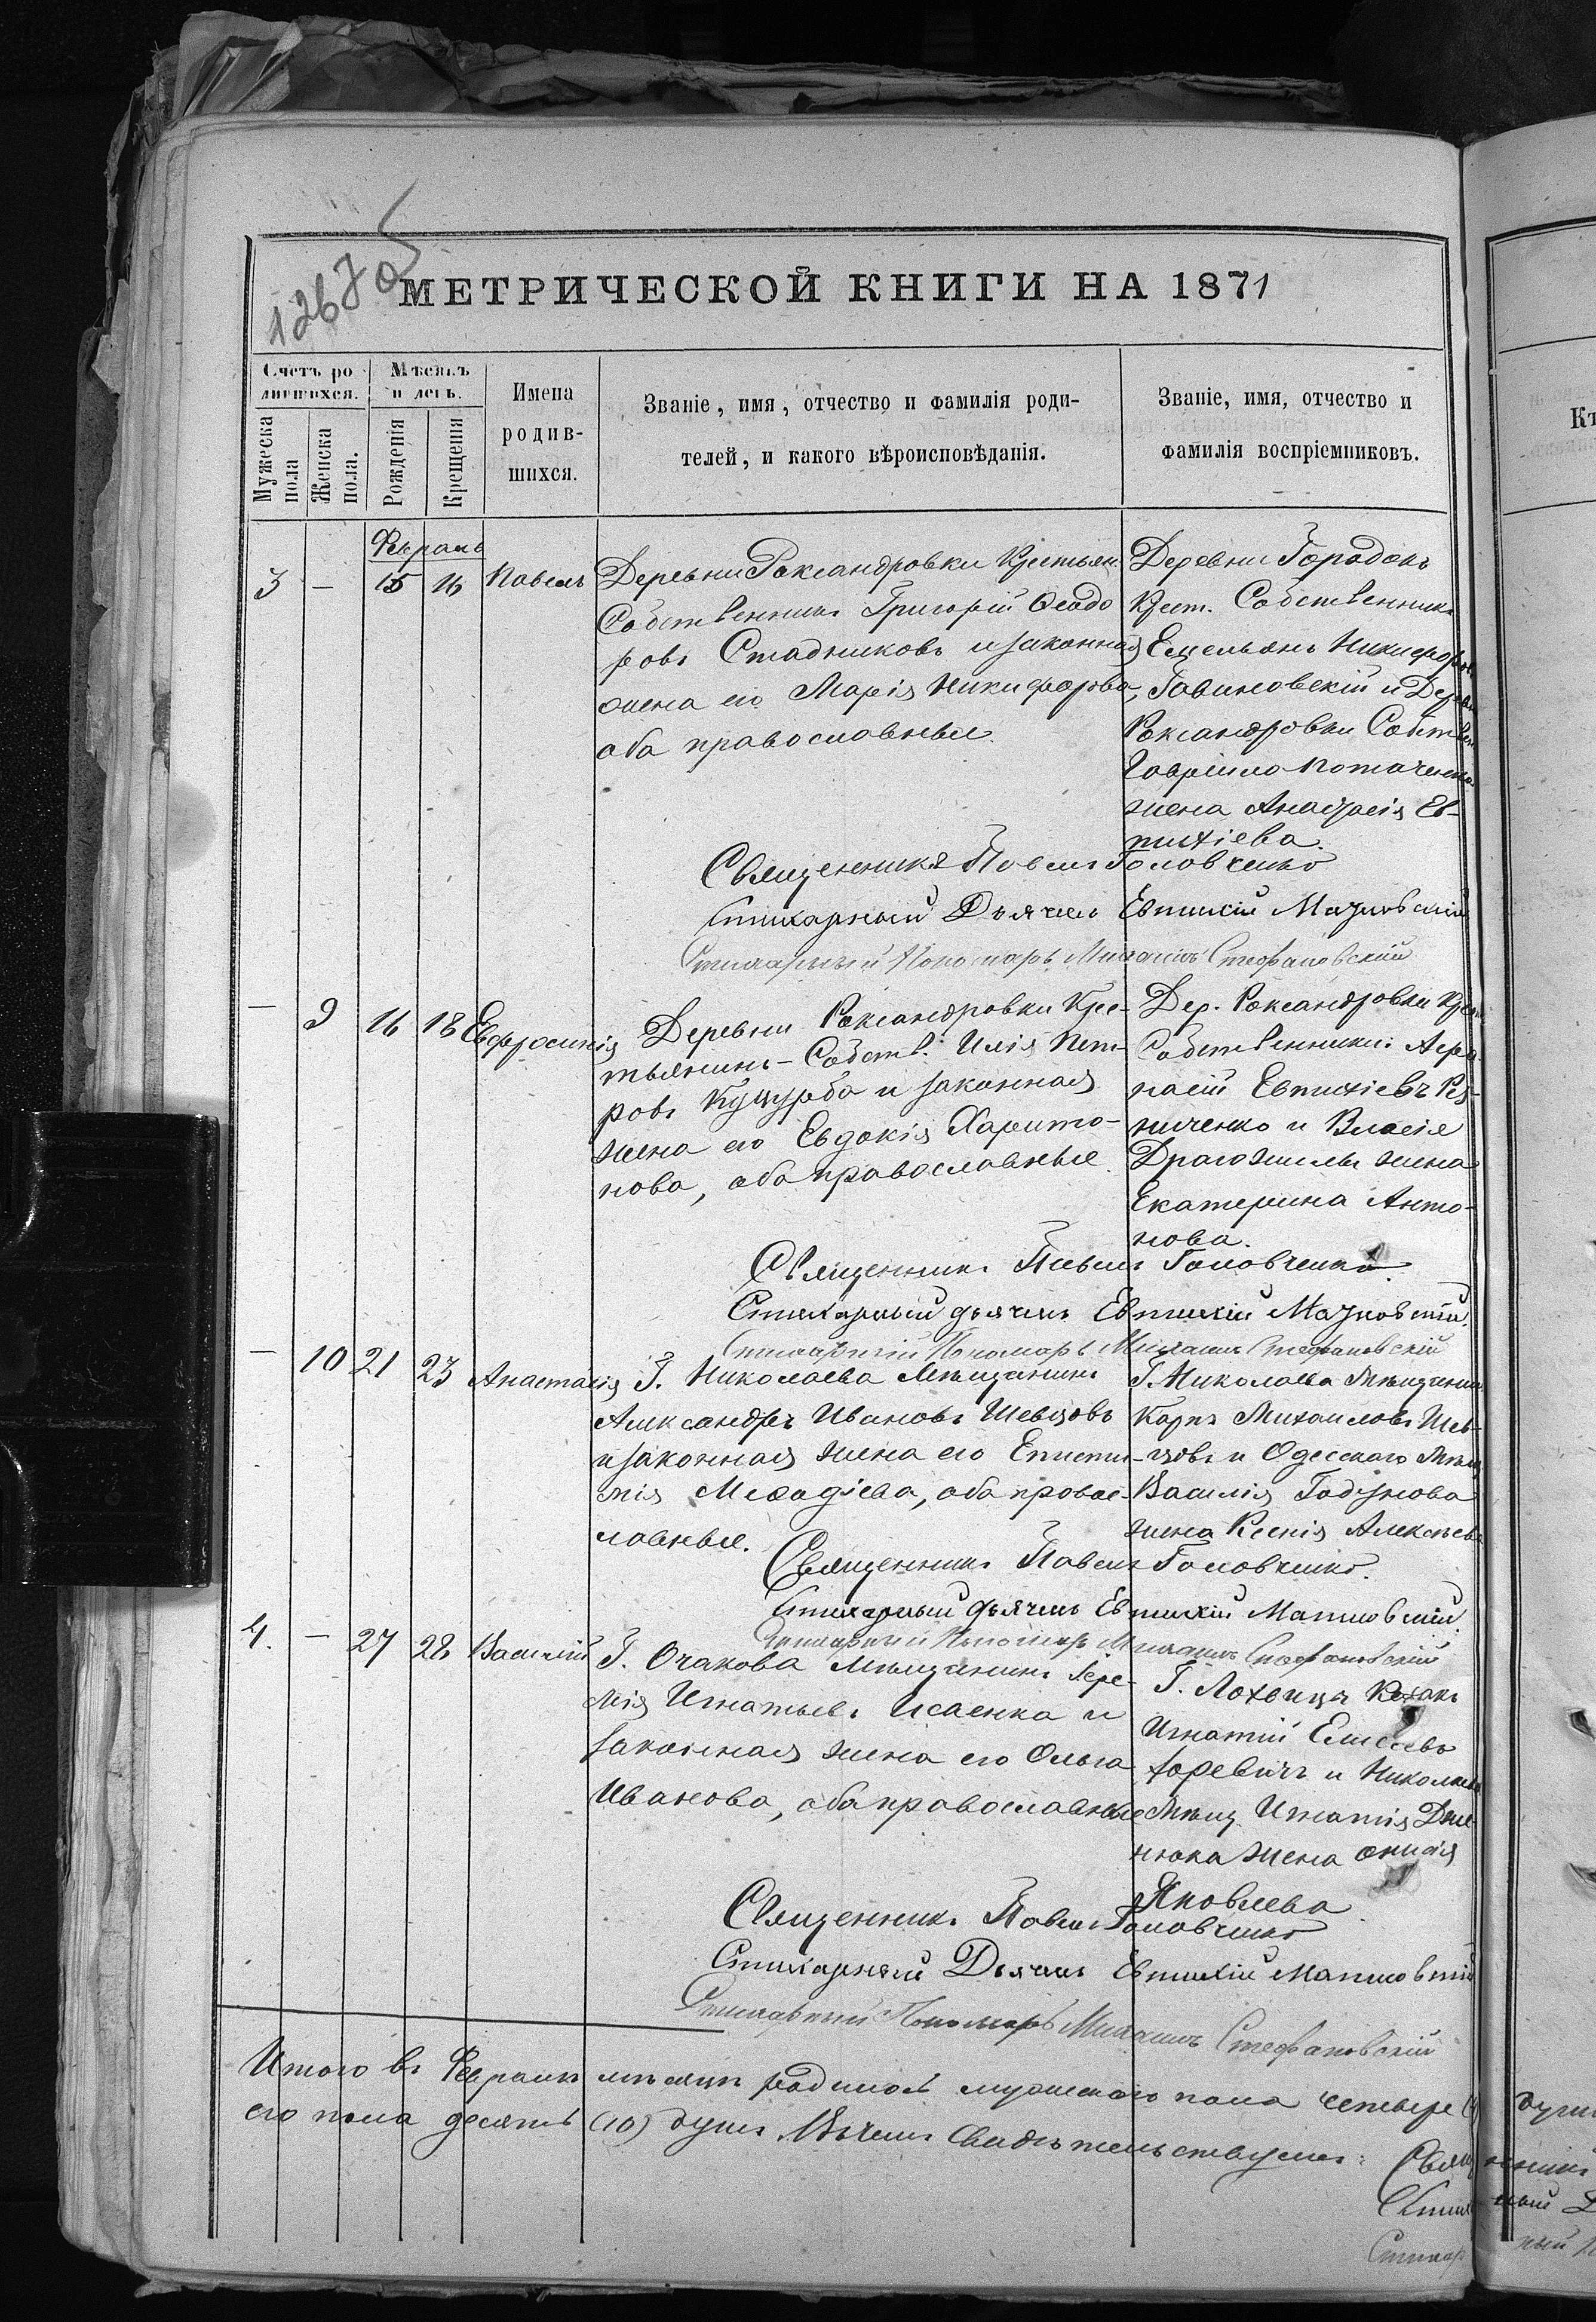 1267 об
МЕТРИЧЕСКОЙ КНИГИ НА 1871
Счетъ родившихся.
Мѣсяцъ и день.
Имена родив-шихся.
Званіе, имя, отчество и фамилія роди-
телей, и какого вѣроисповѣданія.
Званіе, имя, отчество и
фамилія воспріемниковъ.
Мужеска пола
Женска пола.
Рожденія
Крещенія
Февраль
3 — 15 16 Павелъ
Деревни Роксандровки Крестьян.
Собственникъ Григорій Ѳеодо
ровъ Стадниковъ и законная
жена его Марія Никифорова,
оба православные.
Деревни
Крест. Собственникъ
Емельянъ Никифоровъ
и Дерев
Роксандровки Собствен
Гавріила
жена Анастасія Ев-
тихіева.
Священникъ Павелъ Головченко
Стихарный Дьячекъ Евтихій
Стихарный Пономарь Михаилъ Стефановскій
— 9 16 18 Евфросинія
Деревни Роксандровки Кре-
тьянинъ-Собств. Илія Пет-
ровъ и законная
жена его Евдокія Харито-
нова, оба православные.
Дер. Роксандровки Крес
Собственники: Аѳа
насій Евтихіевъ Рез-
ниченко и Власія
жена
Екатерина Анто-
нова.
Священникъ Павелъ Головченко.
Стихарный дьячекъ Евтихій
Стихарный Пономарь Михаилъ Стефановскій
— 10 21 23 Анастасія
Г. Николаева Мѣщанинъ
Александръ Ивановъ Шевцовъ
и законная жена его Еписти-
мія Меѳодіева, оба правос-
лавные.
Г. Николаева Мѣщанин
Карпъ Михаиловъ Шев-
цовъ и Одесскаго Мѣщ
Василія Годунова
жена Ксенія Алексѣев
Священникъ Павелъ Головченко.
Стихарный дьячекъ Евтихій
Стихарный Пономарь Михаилъ Стефановскій
4. — 27 28 Василій
Г. Очакова Мѣщанинъ Іере-
мія Игнатьевъ Исаенка и
законная жена его Ольга
Иванова, оба православные
Г. Лохвицы Козакъ
Игнатій Елисеевъ
и Николаев
Мѣщ. Игнатія
нюка жена
Яковлева
Священникъ Павелъ Головченко
Стихарный Дьячекъ Евтихій
Стихарный Пономарь Михаилъ Стефановскій
Итого въ Февралѣ мѣсяцѣ родилось мужескаго пола четыре (4) души
его пола десять (10) душъ въ чемъ свидѣтельствуемъ: Священникъ